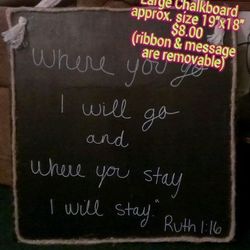 Large Chalkboard
approx. size 19"x18"
$8.00
(ribbon & message
are removable)
where you go
I will go
and
where you stay
I will stay."
Ruth 1:16